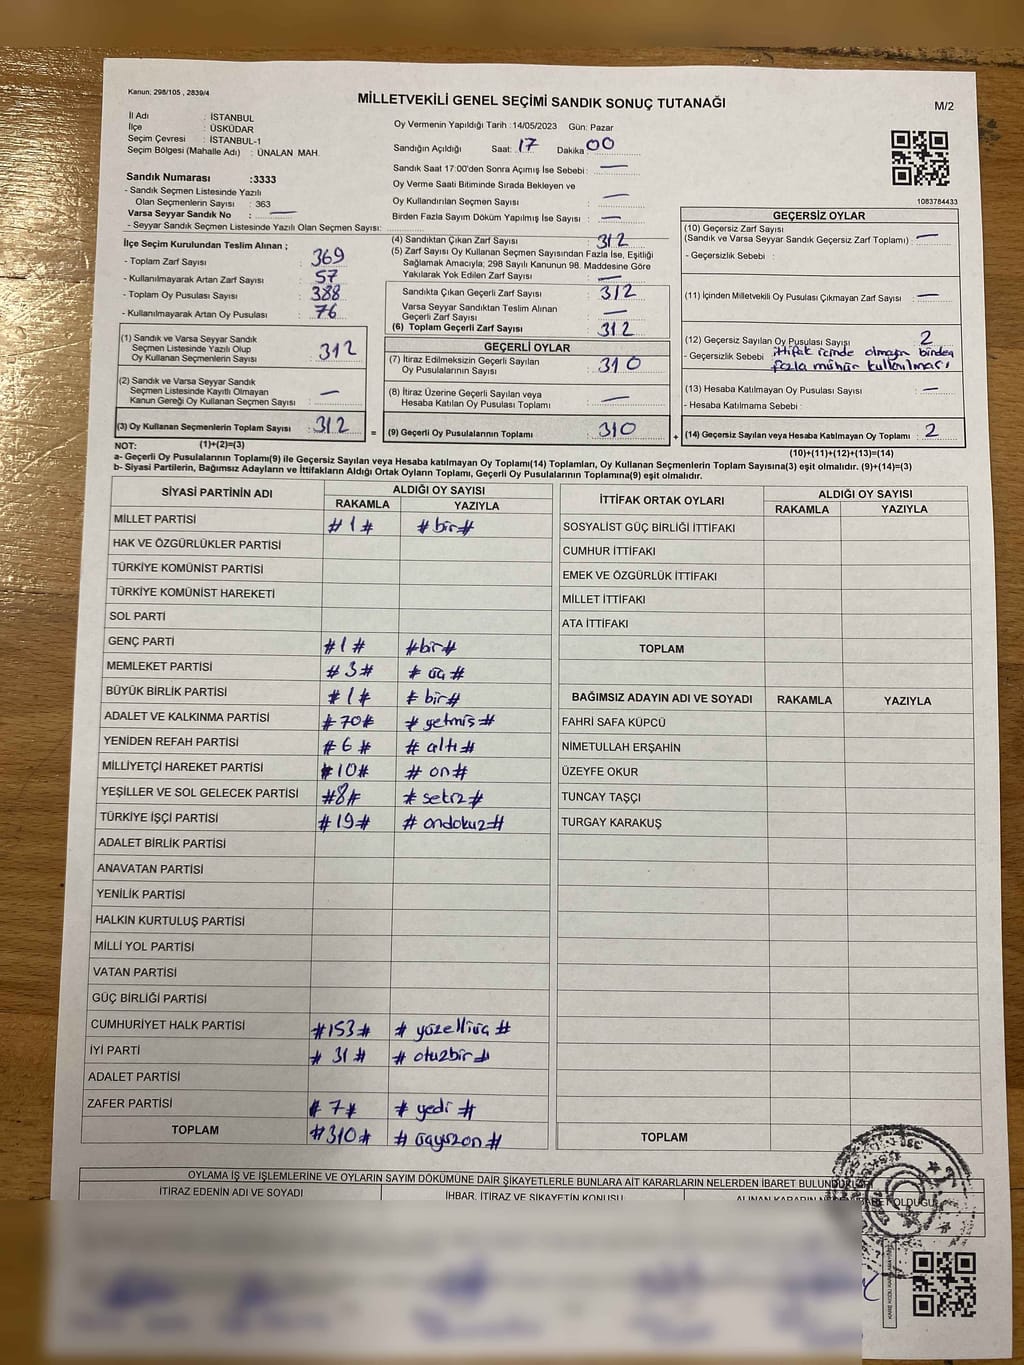 Kanun: 298/105 , 2839/4
MİLLETVEKİLİ GENEL SEÇİMİ SANDIK SONUÇ TUTANAĞI
M/2
İl Adı : İSTANBUL
İlçe : ÜSKÜDAR
Seçim Çevresi : İSTANBUL-1
Seçim Bölgesi (Mahalle Adı) : ÜNALAN MAH.
Oy Vermenin Yapıldığı Tarih : 14/05/2023 Gün: Pazar
Sandığın Açıldığı Saat: 17 Dakika 00
Sandık Saat 17:00'den Sonra Açımış İse Sebebi : —
Oy Verme Saati Bitiminde Sırada Bekleyen ve
Oy Kullandırılan Seçmen Sayısı : —
Birden Fazla Sayım Döküm Yapılmış İse Sayısı : —
1083784433
Sandık Numarası :3333
- Sandık Seçmen Listesinde Yazılı
Olan Seçmenlerin Sayısı : 363
Varsa Seyyar Sandık No : —
- Seyyar Sandık Seçmen Listesinde Yazılı Olan Seçmen Sayısı:
İlçe Seçim Kurulundan Teslim Alınan ;
- Toplam Zarf Sayısı : 369
- Kullanılmayarak Artan Zarf Sayısı : 57
- Toplam Oy Pusulası Sayısı : 388
- Kullanılmayarak Artan Oy Pusulası : 76
(1) Sandık ve Varsa Seyyar Sandık
Seçmen Listesinde Yazılı Olup
Oy Kullanan Seçmenlerin Sayısı : 312
(2) Sandık ve Varsa Seyyar Sandık
Seçmen Listesinde Kayıtlı Olmayan
Kanun Gereği Oy Kullanan Seçmen Sayısı : —
(3) Oy Kullanan Seçmenlerin Toplam Sayısı : 312 =
(4) Sandıktan Çıkan Zarf Sayısı : 312
(5) Zarf Sayısı Oy Kullanan Seçmen Sayısından Fazla İse, Eşitliği
Sağlamak Amacıyla; 298 Sayılı Kanunun 98. Maddesine Göre
Yakılarak Yok Edilen Zarf Sayısı : —
Sandıkta Çıkan Geçerli Zarf Sayısı : 312
Varsa Seyyar Sandıktan Teslim Alınan
Geçerli Zarf Sayısı : —
(6) Toplam Geçerli Zarf Sayısı : 312
GEÇERLİ OYLAR
(7) İtiraz Edilmeksizin Geçerli Sayılan
Oy Pusulalarının Sayısı : 310
(8) İtiraz Üzerine Geçerli Sayılan veya
Hesaba Katılan Oy Pusulası Toplamı : —
(9) Geçerli Oy Pusulalarının Toplamı : 310 +
GEÇERSİZ OYLAR
(10) Geçersiz Zarf Sayısı
(Sandık ve Varsa Seyyar Sandık Geçersiz Zarf Toplamı) : —
- Geçersizlik Sebebi :
(11) İçinden Milletvekili Oy Pusulası Çıkmayan Zarf Sayısı : —
(12) Geçersiz Sayılan Oy Pusulası Sayısı : 2
- Geçersizlik Sebebi : ittifak içinde olmayan birden
fazla mühür kullanılması
(13) Hesaba Katılmayan Oy Pusulası Sayısı : —
- Hesaba Katılmama Sebebi :
(14) Geçersiz Sayılan veya Hesaba Katılmayan Oy Toplamı : 2
NOT: (1)+(2)=(3)
(10)+(11)+(12)+(13)=(14)
a- Geçerli Oy Pusulalarının Toplamı(9) ile Geçersiz Sayılan veya Hesaba katılmayan Oy Toplamı(14) Toplamları, Oy Kullanan Seçmenlerin Toplam Sayısına(3) eşit olmalıdır. (9)+(14)=(3)
b- Siyasi Partilerin, Bağımsız Adayların ve İttifakların Aldığı Ortak Oyların Toplamı, Geçerli Oy Pusulalarının Toplamına(9) eşit olmalıdır.
SİYASİ PARTİNİN ADI ALDIĞI OY SAYISI
RAKAMLA YAZIYLA
MİLLET PARTİSİ #1# #bir#
HAK VE ÖZGÜRLÜKLER PARTİSİ
TÜRKİYE KOMÜNİST PARTİSİ
TÜRKİYE KOMÜNİST HAREKETİ
SOL PARTİ
GENÇ PARTİ #1# #bir#
MEMLEKET PARTİSİ #3# #üç#
BÜYÜK BİRLİK PARTİSİ #1# #bir#
ADALET VE KALKINMA PARTİSİ #70# #yetmiş#
YENİDEN REFAH PARTİSİ #6# #altı#
MİLLİYETÇİ HAREKET PARTİSİ #10# #on#
YEŞİLLER VE SOL GELECEK PARTİSİ #8# #sekiz#
TÜRKİYE İŞÇİ PARTİSİ #19# #ondokuz#
ADALET BİRLİK PARTİSİ
ANAVATAN PARTİSİ
YENİLİK PARTİSİ
HALKIN KURTULUŞ PARTİSİ
MİLLİ YOL PARTİSİ
VATAN PARTİSİ
GÜÇ BİRLİĞİ PARTİSİ
CUMHURİYET HALK PARTİSİ #153# #yüzelliüç#
İYİ PARTİ #31# #otuzbir#
ADALET PARTİSİ
ZAFER PARTİSİ #7# #yedi#
TOPLAM #310# #üçyüzon#
İTTİFAK ORTAK OYLARI ALDIĞI OY SAYISI
RAKAMLA YAZIYLA
SOSYALİST GÜÇ BİRLİĞİ İTTİFAKI
CUMHUR İTTİFAKI
EMEK VE ÖZGÜRLÜK İTTİFAKI
MİLLET İTTİFAKI
ATA İTTİFAKI
TOPLAM
BAĞIMSIZ ADAYIN ADI VE SOYADI RAKAMLA YAZIYLA
FAHRİ SAFA KÜPCÜ
NİMETULLAH ERŞAHİN
ÜZEYFE OKUR
TUNCAY TAŞÇI
TURGAY KARAKUŞ
TOPLAM
OYLAMA İŞ VE İŞLEMLERİNE VE OYLARIN SAYIM DÖKÜMÜNE DAİR ŞİKAYETLERLE BUNLARA AİT KARARLARIN NELERDEN İBARET BULUNDUKLARI
İTİRAZ EDENİN ADI VE SOYADI İHBAR, İTİRAZ VE ŞİKAYETİN KONUSU ALINAN KARARIN NEDEN İBARET OLDUĞU